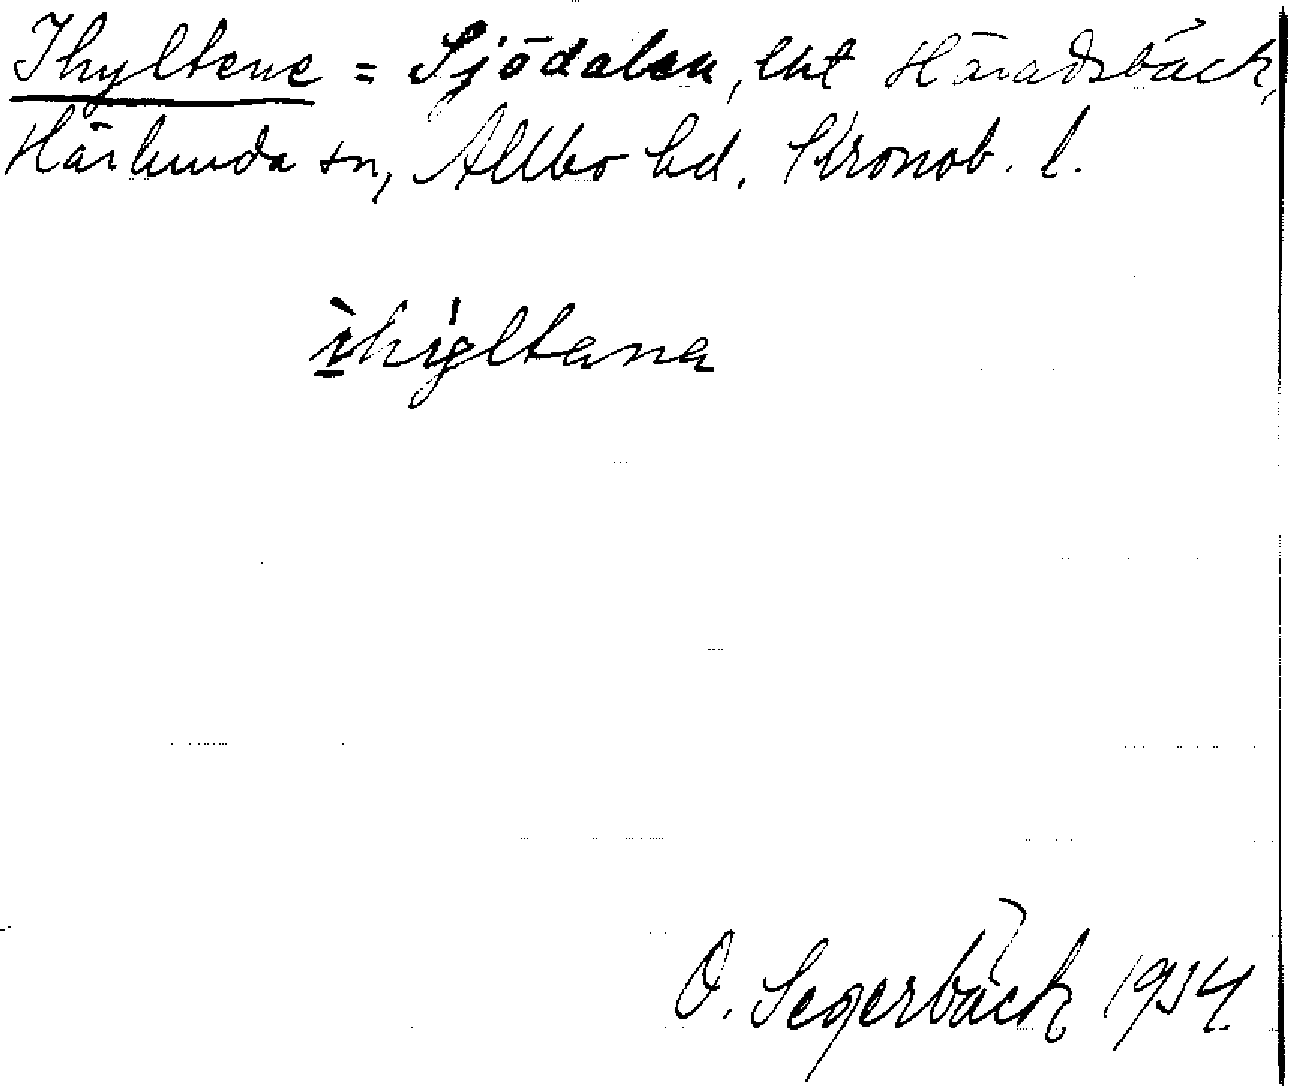 Ihyltene = Sjödalen, lht Häradsbäck,
Härlunda sn, Allbo hd. Kronob. l.
ìhy̍ltana
O. Segerbäck 1934